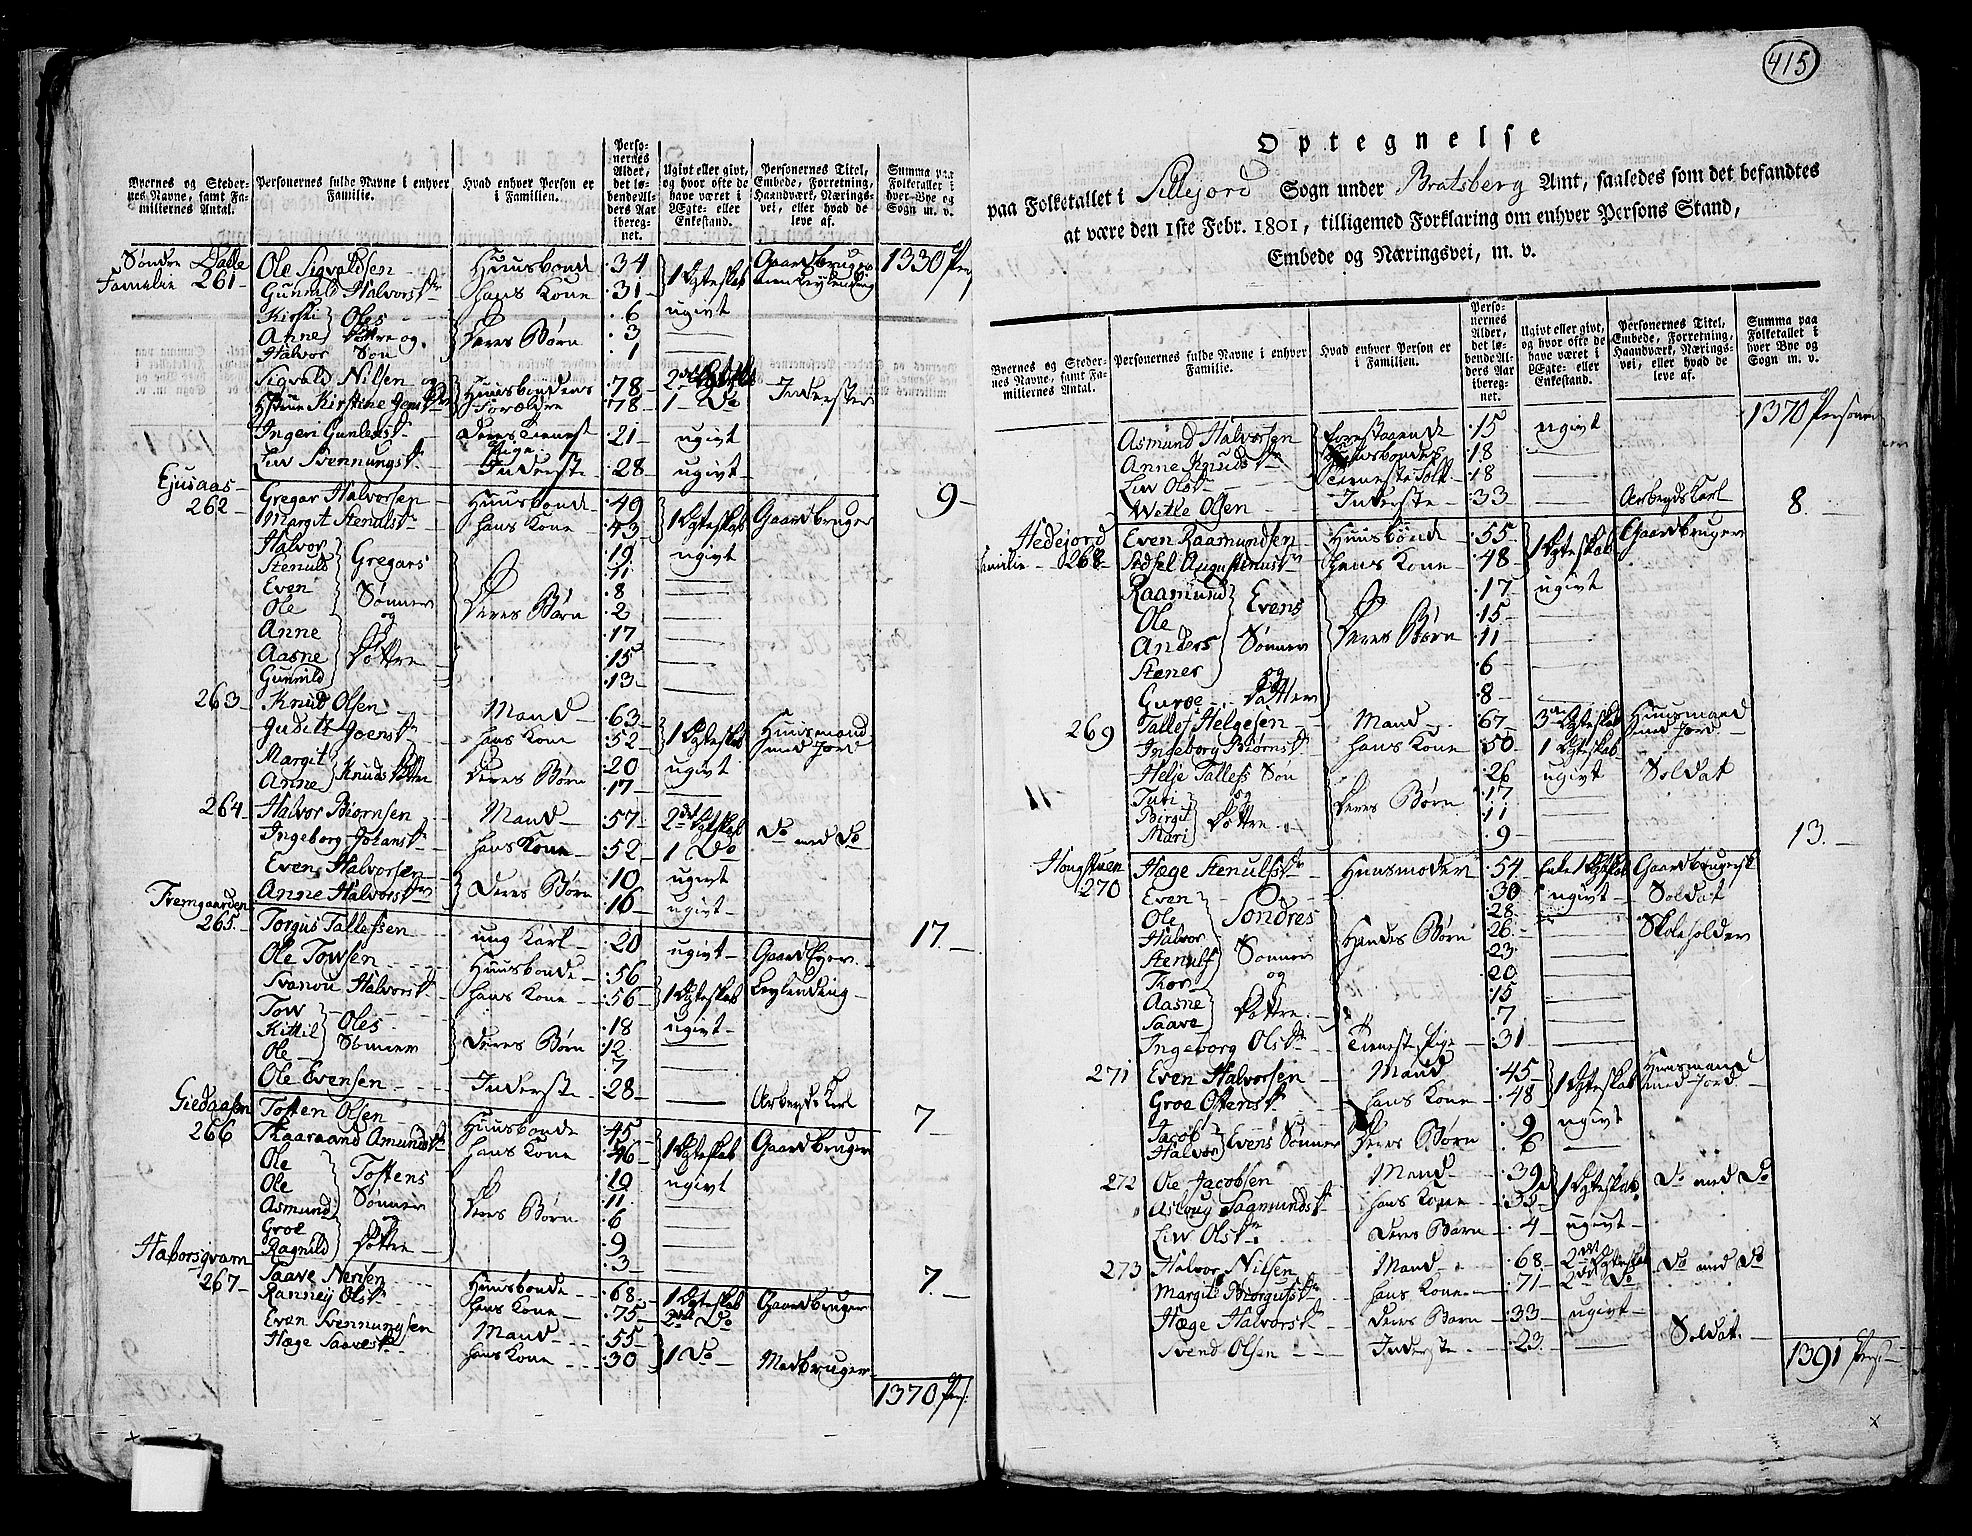 Byernes og Steder-
nes Navne, samt Fa-
miliernes Antal.
Personernes fulde Navne i enhver
Familie.
Hvad enhver Person er
i Familien.
Perso-
nernes
Alder,
det lø-
bende Al-
ders Aar
ibereg-
net.
Ugivt eller givt,
og hvor ofte de
have været i
Ægte- eller
Enkestand.
Personernes Titel,
Embede, Forretning,
Haandværk, Nærings-
vei, eller hvad de
leve af.
Summa paa
Folketallet i
hver Bye og
Sogn m. v.
Søndre Dalle
Familie 261
1330 Pers
Ole Sigvaldsen Huusbond 34 1 Ægteskab Gaardbruger
Gunnild Halvorsdr hans Kone 31
Kirsti Oles 6 ugivt
Anne Døttre og Deres Børn 3
Halvor Søn 1
Sigvald Nilsen og Huusbondens 78 2det Ægteskab Inderster
Kirstine Jensdr Forældre 78 1 Do
Ingeri Gunleksdr Deres Tieneste Pige 21 ugivt
Liv Svennungsdr Inderste 28 ugivt
9
Ejusaas
262
Gregar Halvorsen Huusbonde 49 1 Ægteskab Gaardbruger
Margit Stenulsdr hans Kone 43
Halvor Gregars 19 ugivt
Stenuld 11
Even Sønner 8
Ole og Deres Børn 2
Anne 17
Aasne Døttre 15
Gunnild 13
263 Knud Olsen Mand 63 1 Ægteskab Huusmand
Judith Joensdr hans Kone 52 med Jord
Margit Knuds Døttre Deres Børn 20 ugivt
Anne 17
264 Halvor Biørnsen Mand 57 2det Ægteskab Do med Do
Ingeborg Johansdr hans Kone 52 1 Do
Even Halvorsen Deres Børn 10 ugivt
Anne Halvorsdr 16 ugivt
17.
Fremgaarden
265 Torgus Tallefsen ung Karl 20 ugivt Gaard Eyer
Ole Towsen Huusbonde 56 1 Ægteskab Leylending
Svanou Halvorsdr hans Kone 56
Tow Oles 18 ugivt
Kittil Sønner Deres Børn 12
Ole 7
Ole Evensen Inderste 28 Arbeyds Karl
7
Giedgassen
266
Tosten Olsen Huusbonde 45 1 Ægteskab Gaardbruger
Taaraand Amundsdr hans Kone 46
Ole Tostens 19 ugivt
Ole Sønner 11
Asmund og Deres Børn 6
Groe Døttre 9
Ragnild 3
7.
Haborsqvarn
267
Saave Nensen Huusbonde 68 1 Ægteskab Gaardbruger
Ranney Olsdr hans Kone 75 2det Do
Even Svennungsen Mand 55 1 Do Medbruger
Hæge Saavesdr hans Kone 30
1370 Pers:
415
Optegnelse
paa Folketallet i Sillejord Sogn under Bratsberg Amt, saaledes som det befandtes
at være den 1ste Febr. 1801, tilligemed Forklaring om enhver Persons Stand,
Embede og Næringsvei, m. v.
Byernes og Steder-
nes Navne, samt Fa-
miliernes Antal.
Personernes fulde Navne i enhver
Familie.
Hvad enhver Person er
i Familien.
Perso-
nernes
Alder,
det lø-
bende Al-
ders Aar
ibereg-
net.
Ugivt eller givt,
og hvor ofte de
have været i
Ægte- eller
Enkestand.
Personernes Titel,
Embede, Forretning,
Haandværk, Nærings-
vei, eller hvad de
leve af.
Summa paa
Folketallet i
hver Bye og
Sogn m. v.
1370 Personer
Asmund Halvorsen Forestaaende 15 ugivt
Anne Knudsdr Huusbondes 18
Liv Olsdr Tieneste Folk 18
Wetle Olsen Inderste 33 Arbeyds Karl
8
Hedejord
Familie 268
Even Raamundsen Huusbonde 55 1 Ægteskab Gaardbruger
Sidsel Augustinusdr hans Kone 48
Raamund Evens 17 ugivt
Ole 15
Anders Sønner Deres Børn 11
Stener og 6
Guroe Datter 8
269 Tallef Helgesen Mand 67 3de Ægteskab Huusmand
Ingeborg Biørnsdr hans Kone 50 1 Ægteskab med Jord
Helje Tallefs Søn 26 ugivt Soldat
Turi og Deres Børn 17
Birgit Døttre 11
Mari 9
13.
Hougstuen
270
Hæge Stenulsdr Huusmoder 54 Enke 1 Ægteskab Gaardbrugersk
Even 30 ugivt Soldat
Ole Sondres 28
Halvor 26 Skoleholder
Stenulf Sønner Hendes Børn 23
Thor og 20
Aasne Døttre 15
Saave 7
Ingeborg Olsdr Tieneste Pige 31
271 Even Halvorsen Mand 45 1 Ægteskab Huusmand
Groe Ostensdr hans Kone 48 med Jord
Jacob Evens Sønner Deres Børn 9 ugivt
Halvor 6
272 Ole Jacobsen Mand 39 1 Ægteskab Do med Do
Asloug Sagmundsdr hans Kone 35
Liv Olsdr Deres Barn 4 ugivt
273 Halvor Nilsen Mand 68 2det Ægteskab Do med Do
Margit Torgusdr hans Kone 71 2det Do
Hæge Halvorsdr Deres Barn 33 ugivt
Svend Olsen Inderste 23 Soldat
1391 Pers